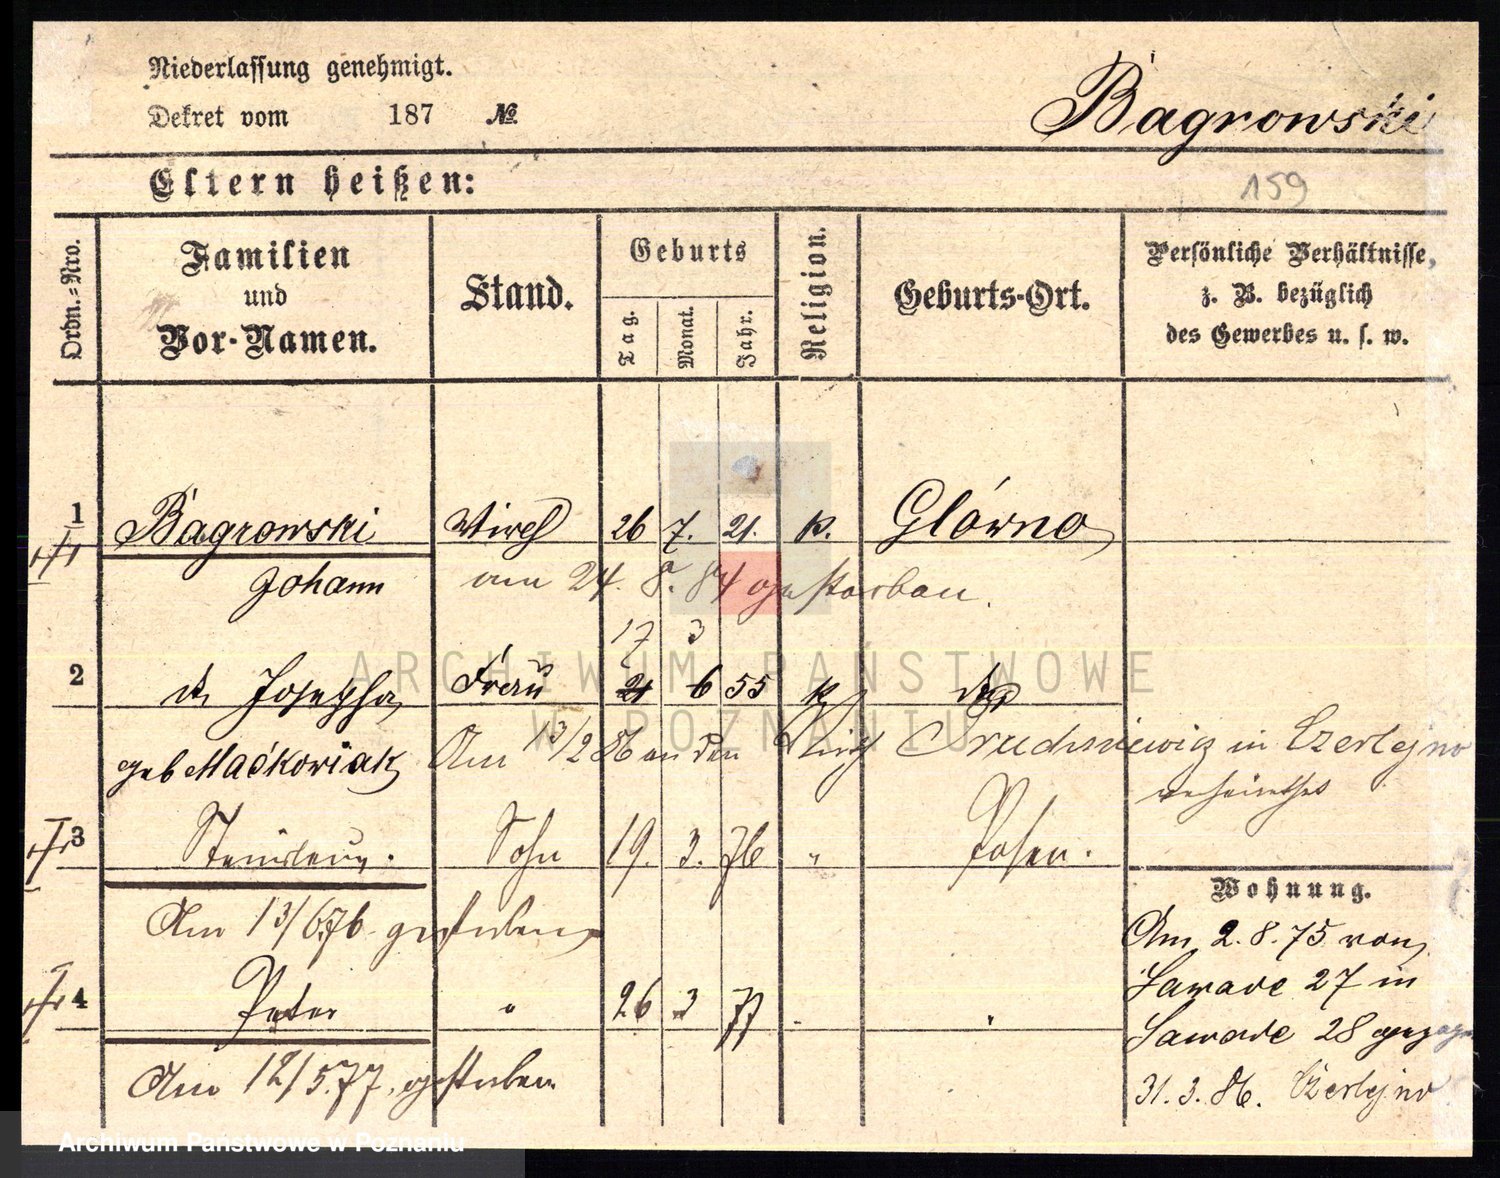 Niederlassung genehmigt.
Dekret vom 187 №
Bagrowski
Eltern heißen:
159
Ordn.=Nro.
Familien
und
Vor-Namen.
Stand.
Geburts
Tag.
Monat.
Jahr.
Religion.
Geburts-Ort.
Persönliche Verhältnisse,
z. B. bezüglich
des Gewerbes u. s. w.
1 Bagrowski Wirth 26 7. 21. k. Glówno
Johann am 24. 8. 84 gestorben.
17 3
2 Josepha Frau 21 6 55 k
geb Maćkowiak Am 13/2 86 an den Wirth in Czerlejno
verheirathet
3 Stanislaus. Sohn 19. 3. 76 " Posen.
Am 13/6.76 gestorben
4 Peter " 26 3 77 " "
Am 12/5.77. gestorben
Wohnung.
Am 2. 8. 75 von
Sawade 27 in
Sawade 28 gezogen
31. 3. 86. Czerlejno
ARCHIWUM PAŃSTWOWE
W POZNANIU
Archiwum Państwowe w Poznaniu